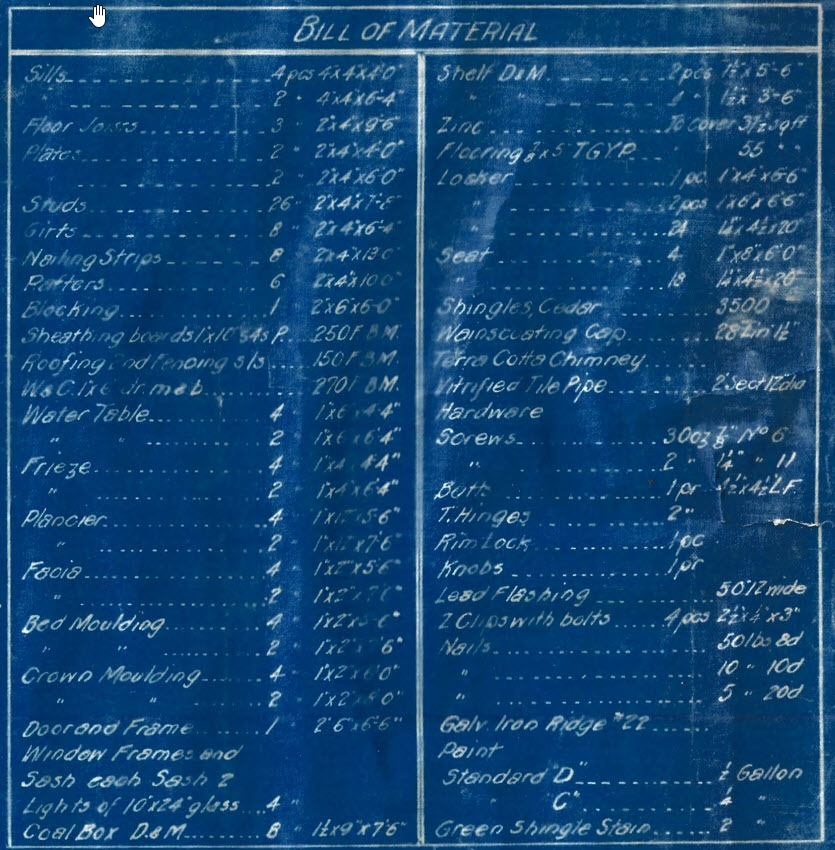 BILL OF MATERIAL
Sills 4 pcs 4"x4"x4'-0"
" 2 " 4"x4"x6'-4"
Floor Joists 3 " 2"x4"x9'-6"
Plates 2 " 2"x4"x4'-0"
2 " 2"x4"x6'-0"
Studs 26 " 2"x4"x7'-8"
Girts 8 " 2"x4"x6'-4"
Nailing Strips 8 2"x4"x13'-0"
Rafters 6 2"x4"x10'-0"
Blocking 1 2"x6"x6'-0"
Sheathing boards 1"x10" s4s P. 250 F.B.M.
Roofing and Fencing s/s 150 F.B.M.
W&C. 1x6 dr. m&b 270 BM.
Water Table 4 1"x6"x4'-4"
" " 2 1"x6"x6'-4"
Frieze 4 1"x4"x4'-4"
" 2 1"x4"x6'-4"
Plancier 4 1"x12"x5'-6"
" 2 1"x12"x7'-6"
Facia 4 1"x2"x5'-6"
" 2 1"x2"x7'-6"
Bed Moulding 4 1"x2"x5'-6"
" " 2 " 1"x2"x7'-6"
Crown Moulding 4 1"x2"x6'-0"
" " 2 1"x2"x8'-0"
Door and Frame 1 2'-6"x6'-6"
Window Frames and
Sash each Sash 2
Lights of 10"x24" glass 4 "
Coal Box D.&M. 8 " 1½"x9"x7'-6"
Shelf D&M. 2 pcs 1½"x5'-6"
" " 1 " 1½"x3'-6"
Zinc To cover 3½ sq ft
Flooring ⅞x5" T.G.Y.P. " " 55 " "
Locker 1 pc 1"x4"x6'-6"
" 2 pcs 1"x6"x6'-6"
" 24 1¼"x4½"x20"
Seat 4 1"x8"x6'-0"
" 18 1¼"x4½"x20"
Shingles, Cedar 3500
Wainscoating Cap 28 Lin 1½"
Terra Cotta Chimney
Vitrified Tile Pipe 2' Sect 12" dia
Hardware
Screws 30 oz ⅞" Nº 6
" 2 " 1¼" " 11
Butts 1 pr 4½"x4½" L.F
T. Hinges 2 "
Rim Lock 1 pc
Knobs 1 pr
Lead Flashing 50' 12" wide
Z Clips with bolts 4 pcs 2½"x4"x3"
Nails 50 lbs 8d
" 10 " 10d
" 5 " 20d
Galv. Iron Ridge #22
Paint
Standard "D" ½ Gallon
" C" ¼ "
Green Shingle Stain 2 "